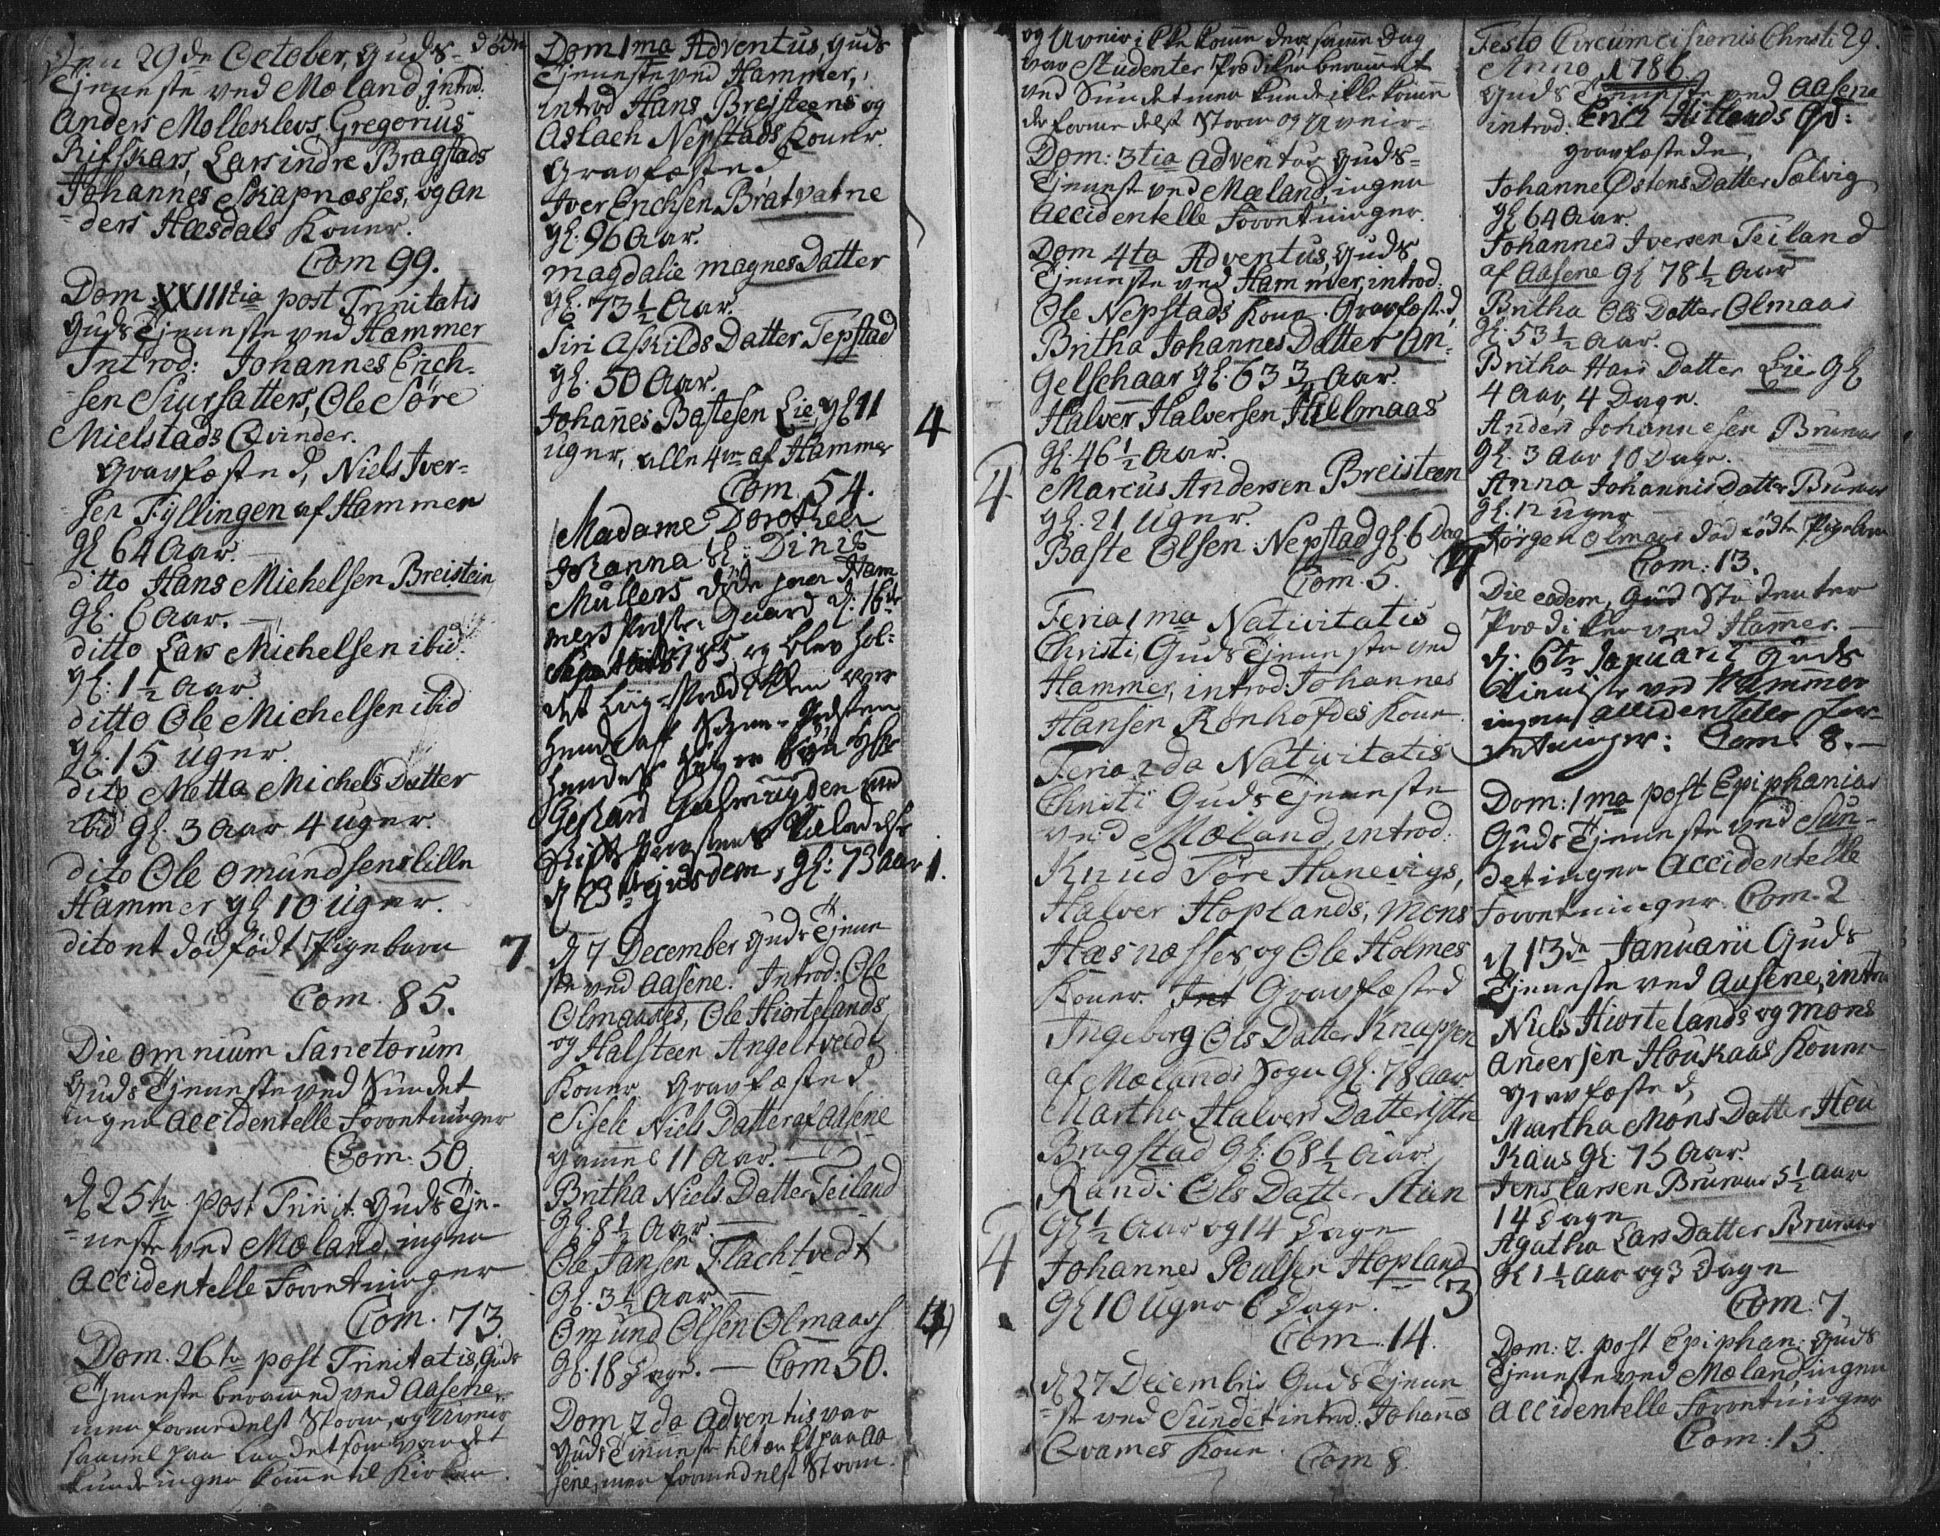 Den 29de October, Guds- døde
Tjeneste ved Mæland, introd.
Anders Molleklevs, Gregorius
Rifskars, Lars indre Bragstads
Johannes Skapnæsses, og An
-ders Hæsdals Koner.
Com 99.
Dom. XXIIItia post Trinitatis
Guds Tjeneste ved Hammer
Introd: Johannes Erich-
sen Siursatters, Ole Søre
Mielstads Qvinder.
Gravfæsted, Niels Iver-
sen Fyllingen af Hammer
gl 64 Aar.
ditto Hans Michelsen Breistein
gl: 6 Aar.
ditto Lars Michelsen ibid.
gl: 1½ Aar
ditto Ole Michelsen ibid
gl: 15 Uger.
dito Metta Michels Datter
ibid gl. 3 Aar 4 uger.
dito Ole Omundsen lille
Hammer gl 10 Uger.
dito et dødfødt Pigebarn 7
Com. 85.
Die omnium Sanctorum
Guds Tjeneste ved Sundet
ingen Accidentelle Forretninger
Com. 50
d 25te post Trinit. Guds Tje-
-neste ved Mæland, ingen
Accidentelle Forretninger
Com. 73.
Dom. 26te post Trinitatis, Guds
Tjeneste berammed ved Aasene,
men formedelst Storm, og Uveir
saavel paa Landet som vandet
kunde ingen komme til Kirken.
Dom 1ma Adventus, Guds
Tjeneste ved Hammer,
introd Hans Brejsteens og
Aslach Nepstads Koner.
Gravfæsted
Iver Erichsen Bratvatne
gl. 96 Aar.
magdalie magnes Datter
gl. 73½ Aar.
Siri Askilds Datter Tepstad
gl. 50 Aar.
Johannes Bastesen Lie gl 11
uger, alle 4re af Hammer 4
Com. 54.
Madame Dorothea
Johanna
Müllers døde paa Ham
mers Præste-Gaard d: 16de
1785, og blev hol-
det Liig-Prædiken over
hende af Sogne-Præsten
hendes
Gerhard Geelmuyden med
Stifts Provstens Tilladelse
d 23de ejusdem, gl: 73 Aar 1.
d 7 December Guds Tjene
ste ved Aasene. Introd: Ole
Olmaases, Ole Hiortelands
og Halsteen Angeltveedts
Koner. Gravfæsted
Sisele Niels Datter af Aasene
gamel 11 Aar.
Britha Niels Datter Teiland
gl. 8½ Aar.
Ole Jansen Flachtvedt
gl. 3½ Aar.
Omund Olsen Olmaas
gl. 18 Dage. — Com 50.
Dom 2da Adventus var
Guds Tjeneste tiltænkt paa Aa
sene, men formedelst Storm
og Uveir ikke komme der, samme Dag
var Studenter Prædiken berammet
ved Sundet men kunde ikke komme
der formedelst Storm og Uveir.
Dom: 3tia Adventus Guds-
Tjenest ved Mæland, ingen
Accidentelle Forretninger.
Dom 4ta Adventus, Guds
Tjeneste ved Hammer, introd:
Ole Nepstads Kone. Gravfæsted,
Britha Johannes Datter An-
gelschaar gl. 63¾ Aar.
Halver Halversen Hillmaas
gl. 46½ Aar.
Marcus Andersen Breisteen
gl. 21 Uger.
Baste Olsen Nepstad gl 6 Dag
Com. 5. 4
Feria 1ma Nativitatis
Christi, Guds Tjeneste ved
Hammer, introd: Johannes
Hansen Rønhofdes Kone.
Feria 2da Nativitatis
Christi Guds Tjeneste
ved Mæland, introd.
Knud Søre Hanevigs,
Halver Hoplands, Mons
Hæsnæsses og Ole Holmes
Koner. Gravfæsted
Ingeborg Ols Datter Knappen
af Mælands Sogn gl. 78 Aar.
Martha Halvers Datter ittre
Bragstad gl: 68½ Aar
Randi Ols Datter Stien
gl ½ Aar og 14 Dage
Johannes Poulsen Hopland
gl 10 Uger 6 Dage. 3
Com. 14.
d 27 Decembris Guds Tjene
-ste ved Sundet introd. Johanes
Qvames Kone. Com 8.
Festo Circumcisionis Christi 29.
Anno 1786
Guds Tjeneste ved Aasene
introd. Erich Hitlands Qv:
gravfæstede,
Johanne Østens Datter Sælvig
gl 64 Aar.
Johannes Iversen Teiland
af Aasene gl 78½ Aar
Britha Ols Datter Olmaas
gl. 53½ Aar.
Britha Hans Datter Lie gl
4 Aar, 4 Dage.
Anders Johannesen Brunaas
gl. 3 Aar 10 Dage.
Anna Johannis Datter Brunaas
gl. 12 Uger
Jørgen Olmaas død födte Pigebarn
Com: 13.
Die eodem, Studenter
Prædiken ved Hamer.
d: 6te Januarii Guds
Tieniste ved Hammer
ingen accidenteler for-
retninger: Com. 8.—
Dom: 1ma post Epiphanias
Guds Tjeneste ved Sun-
det ingen Accidentelle
Forretninger. Com. 2
d 13de Januarii Guds
Tjeneste ved Aasene, introd
Niels Hiortelands og Mons
Andersen Houkaas Koner
Gravfæsted
Martha Mons Datter Heu
Kaas gl. 75 Aar.
Jens Larsen Brunaas 5½ Aar
14 Dage
Agatha Lars Datter Brunaas
gl 1½ Aar og 3 Dage
Com: 7
Dom: 2. post Epiphan: Guds
Tjeneste ved Mæland, ingen
Accidentelle Forretninger
Com: 15.